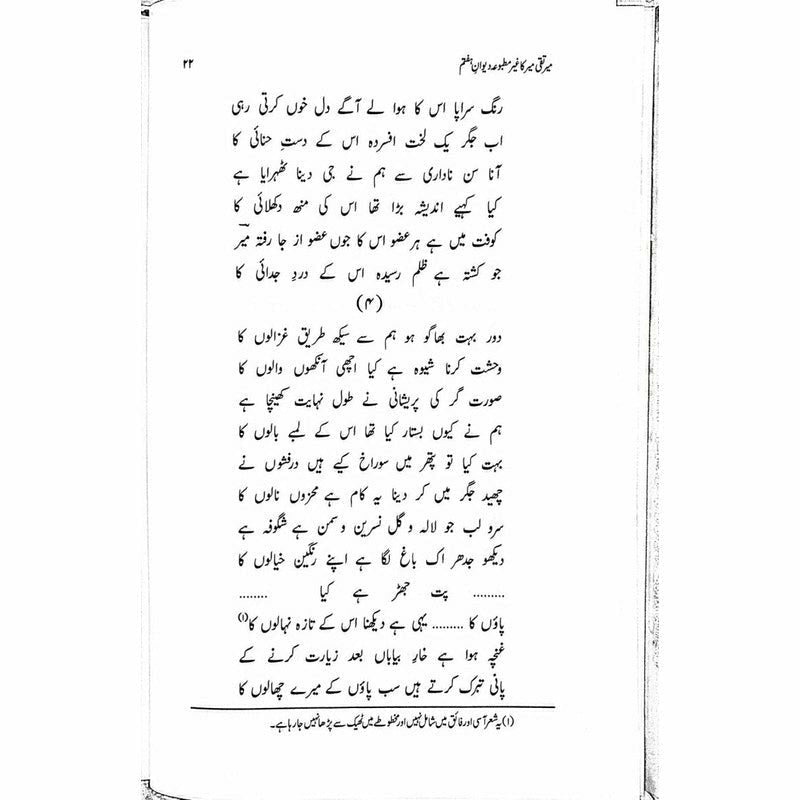 میر تقی میر کا غیر مطبوعہ دیوانِ ہفتم ۲۲
رنگ سراپا اس کا ہوا لے آگے دل خوں کرتی رہی
اب جگر یک لخت افسردہ اس کے دستِ حنائی کا
آنا سن ناداری سے ہم نے جی دینا ٹھہرایا ہے
کیا کہیے اندیشہ بڑا تھا اس کی منھ دکھلائی کا
کوفت میں ہے ہر عضو اس کا جوں عضو از جا رفتہ میرؔ
جو کشتہ ہے ظلم رسیدہ اس کے دردِ جدائی کا
(۴)
دور بہت بھاگو ہو ہم سے سیکھ طریق غزالوں کا
وحشت کرنا شیوہ ہے کیا اچھی آنکھوں والوں کا
صورت گر کی پریشانی نے طول نہایت کھینچا ہے
ہم نے کیوں بستار کیا تھا اس کے لمبے بالوں کا
بہت کیا تو پتھر میں سوراخ کیے ہیں درفشوں نے
چھید جگر میں کر دینا یہ کام ہے محزوں نالوں کا
سرو لب جو لالہ و گل نسرین و سمن ہے شگوفہ ہے
دیکھو جدھر اک باغ لگا ہے اپنے رنگین خیالوں کا
......... پت جھڑ ہے کیا ........
پاؤں کا ......... یہی ہے دیکھنا اس کے تازہ نہالوں کا(۱)
غنچہ ہوا ہے خارِ بیاباں بعد زیارت کرنے کے
پانی تبرک کرتے ہیں سب پاؤں کے میرے چھالوں کا
(۱) یہ شعر آسی اور فائق میں شامل نہیں اور مخطوطے میں ٹھیک سے پڑھا نہیں جا رہا ہے۔